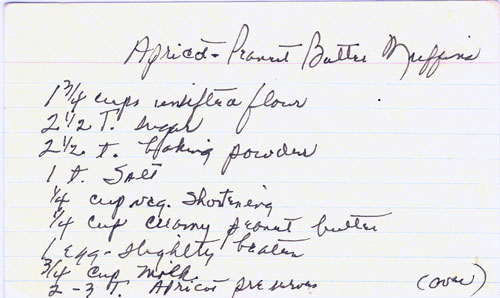 Apricot-Peanut Butter Muffins
1 3/4 cups unsifted flour
2 1/2 T. sugar
2 1/2 t. baking powder
1 t. Salt
1/4 cup veg. Shortening
1/4 cup creamy peanut butter
1 egg - slightly beaten
3/4 cup milk
2-3 T. Apricot preserves (over)